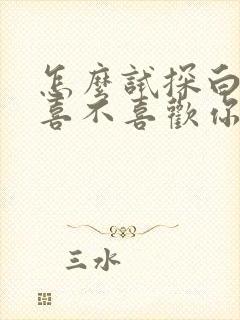 怎麼試探白
喜不喜歡你
三水